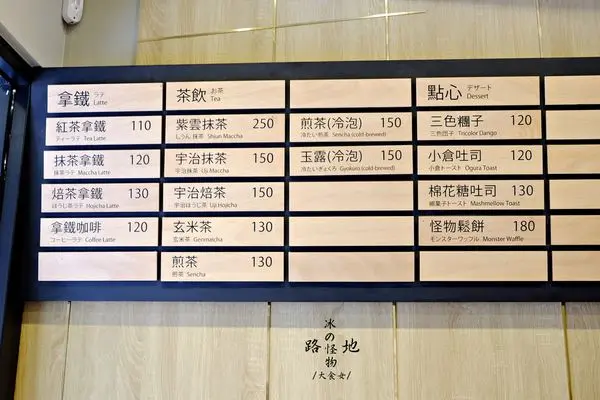 拿鐵 ラテ
Latte
紅茶拿鐵 110
ティーラテ Tea Latte
抹茶拿鐵 120
抹茶ラテ Maccha Latte
焙茶拿鐵 130
ほうじ茶ラテ Hojicha Latte
拿鐵咖啡 120
コーヒーラテ Coffee Latte
茶飲 お茶
Tea
紫雲抹茶 250
しうん 抹茶 Shiun Maccha
宇治抹茶 150
宇治抹茶 Uji Maccha
宇治焙茶 150
宇治ほうじ茶 Uji Hojicha
玄米茶 130
玄米茶 Genmaicha
煎茶 130
煎茶 Sencha
煎茶(冷泡) 150
冷たい煎茶 Sencha (cold-brewed)
玉露(冷泡) 150
冷たいぎょくろ Gyokuro (cold-brewed)
點心 デザート
Dessert
三色糰子 120
三色団子 Tricolor Dango
小倉吐司 120
小倉トースト Ogura Toast
棉花糖吐司 130
綿菓子トースト Mashmellow Toast
怪物鬆餅 180
モンスターワッフル Monster Waffle
冰の怪物
路地
/大食女/